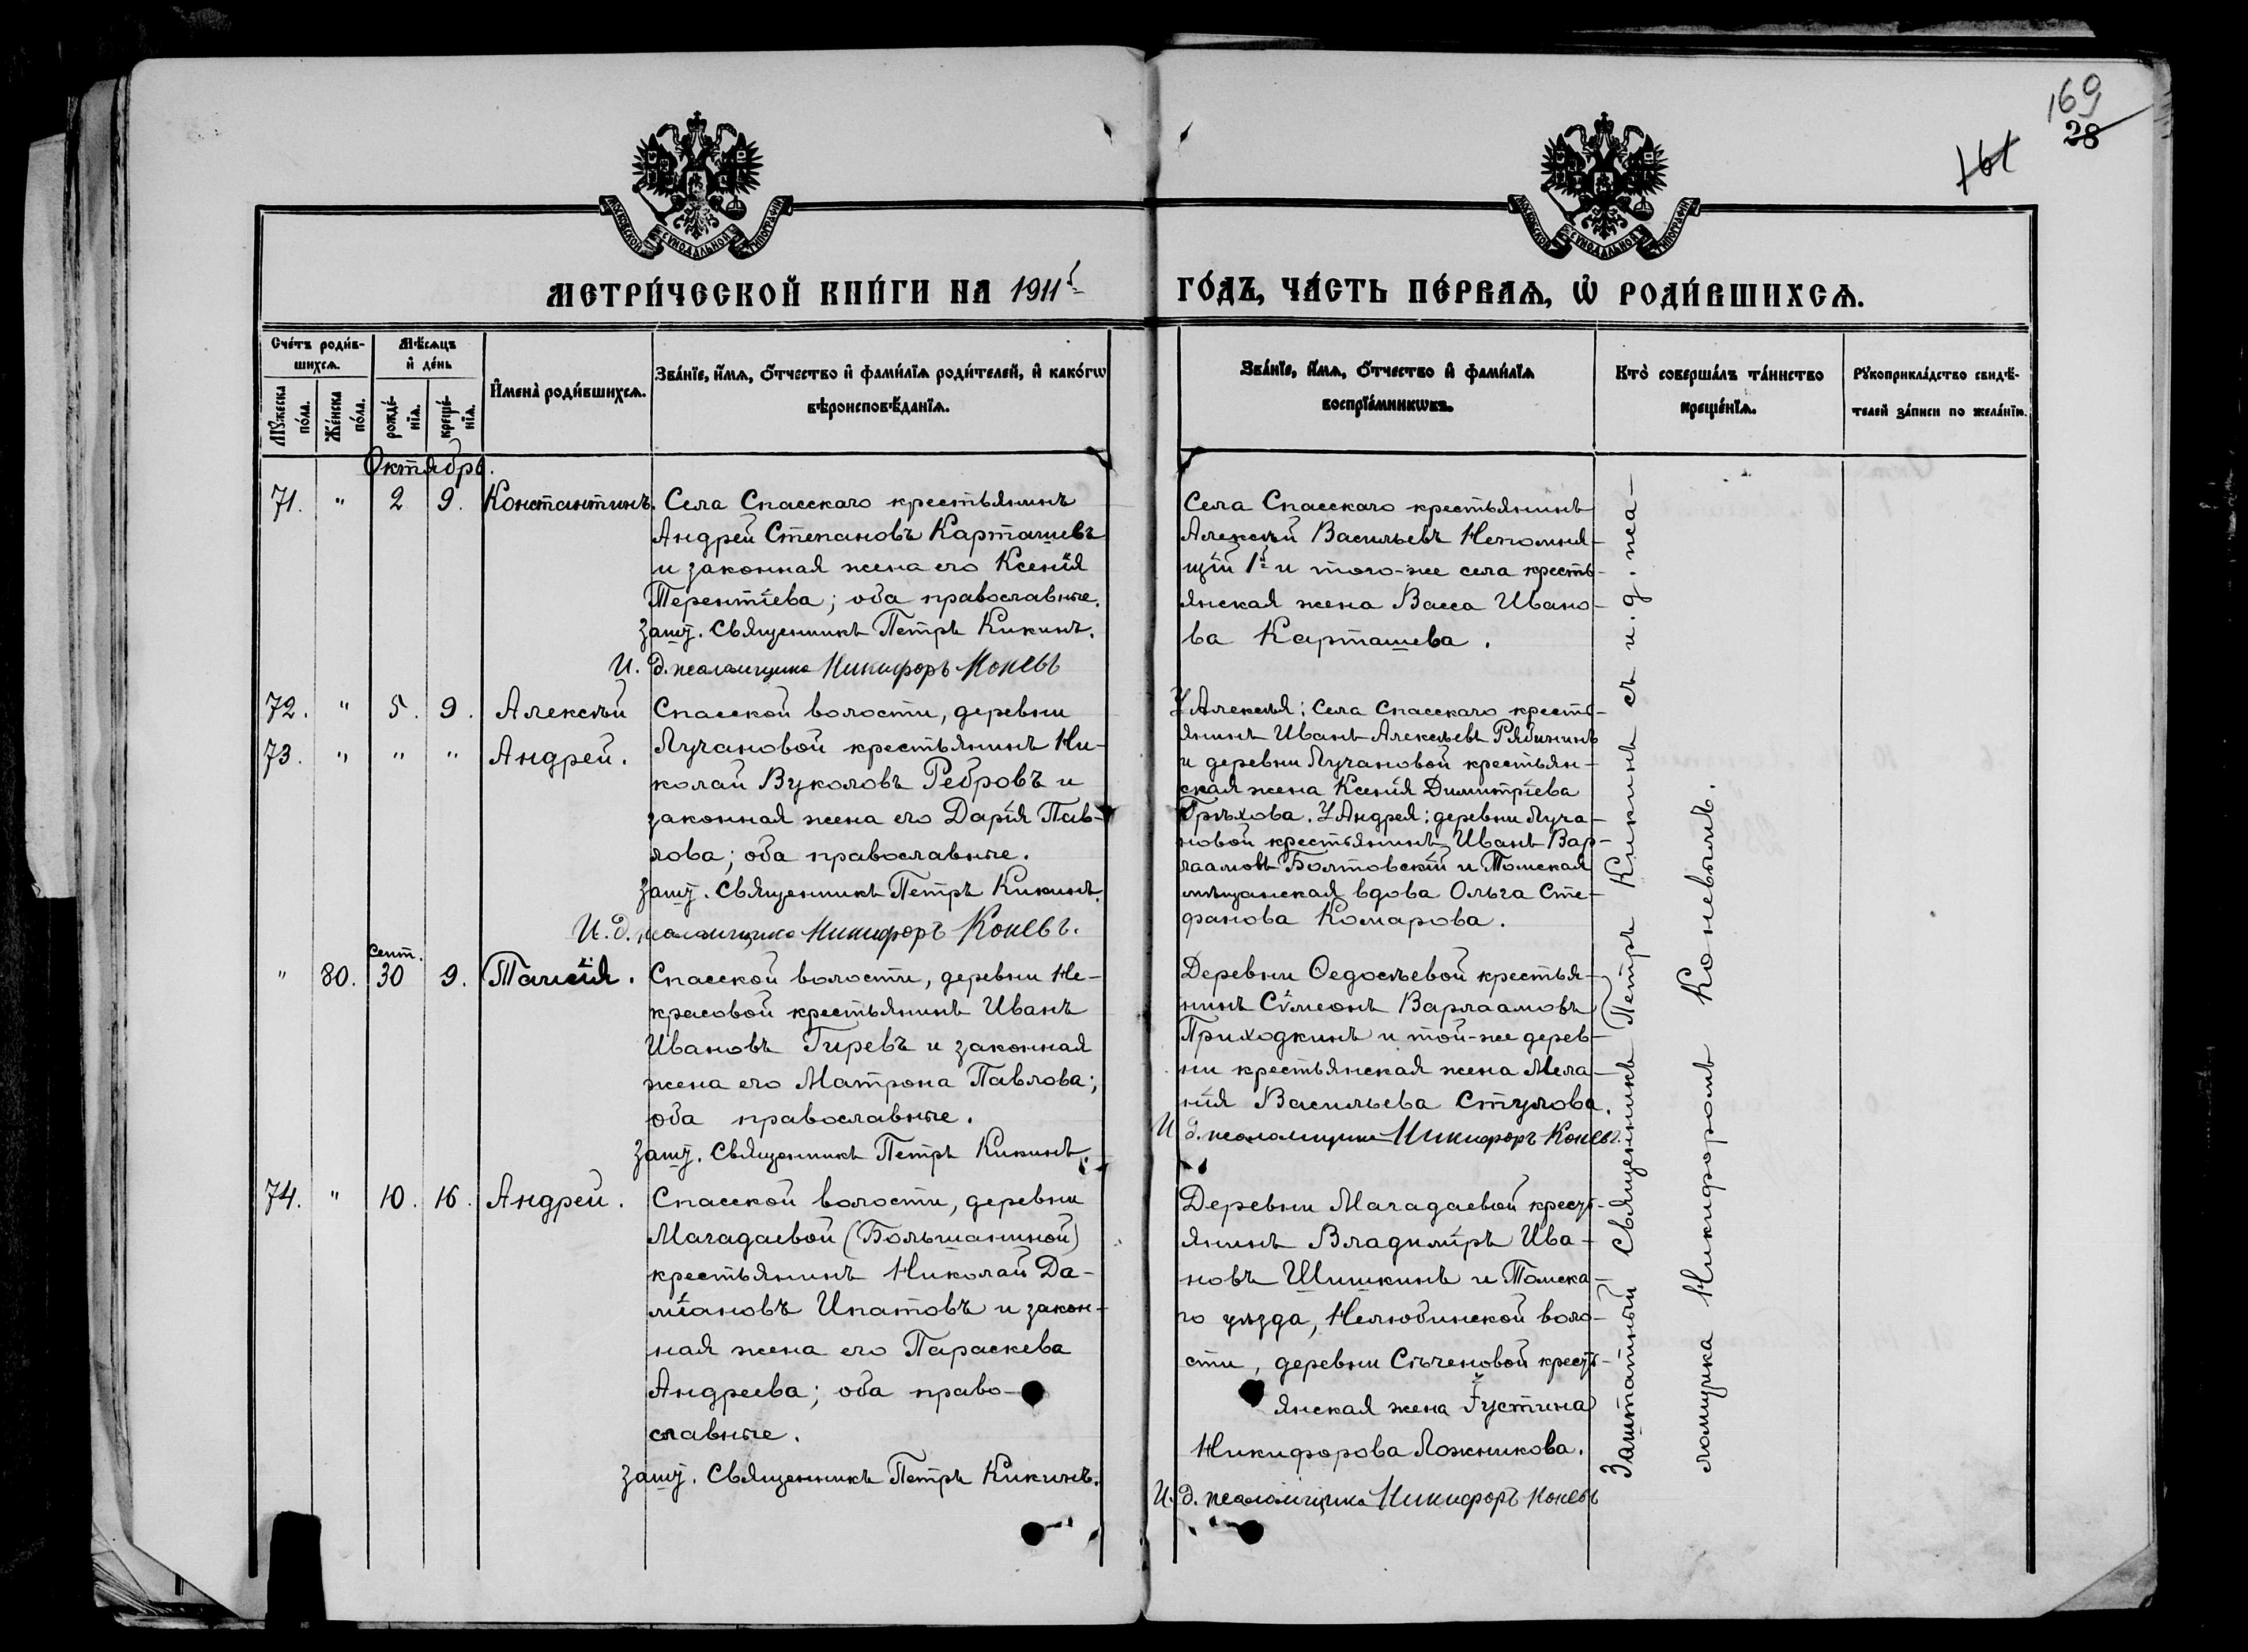 169
28
161
МОСКОВСКОЙ СѴНОДАЛЬНОЙ ТИПОГРАФІИ
МОСКОВСКОЙ СѴНОДАЛЬНОЙ ТИПОГРАФІИ
МЕТРИ́ЧЕСКОЙ КНИ́ГИ НА 1911й
ГО́ДЪ, ЧА́СТЬ ПЕ́РВАѦ, Ѡ҆ РОДИ́ВШИХСѦ.
Сче́тъ роди́в-
шихсѧ.
Мѣ́сѧцъ
и҆ де́нь
Мꙋ́жеска
по́ла.
Же́нска
по́ла.
рожде́-
нїѧ.
креще́-
нїѧ.
И҆мена̀ роди́вшихсѧ.
Зва́нїе, и҆́мѧ, ѻ҆́тчество и҆ фами́лїѧ роди́телей, и҆ како́гѡ
вѣроисповѣ́данїѧ.
Зва́нїе, и҆́мѧ, ѻ҆́тчество и҆ фами́лїѧ
воспрїе́мникѡвъ.
Кто̀ соверша́лъ та́инство
креще́нїѧ.
Рꙋкоприкла́дство свидѣ́-
телей за́писи по жела́нїю.
Октябрь.
71. " 2 9. Константинъ. Села Спасскаго крестьянинъ
Андрей Степановъ Карташевъ
и законная жена его Ксенія
Терентіева; оба православные.
Зашт. Священникъ Петръ Кикинъ.
И. д. псаломщика Никифоръ Коневъ
Села Спасскаго крестьянинъ
Алексѣй Васильевъ Непомня-
щій 1й и того-же села кресть-
янская жена Васса Ивано-
ва Карташева.
72. " 5. 9. Алексѣй Спасской волости, деревни
73. " " " Андрей. Лучановой крестьянинъ Ни-
колай Вуколовъ Ребровъ и
законная жена его Дарія Пав-
лова; оба православные.
Зашт. Священникъ Петръ Кикинъ.
И. д. псаломщика Никифоръ Коневъ.
У Алексѣя: Села Спасскаго кресть-
янинъ Иванъ Алексѣевъ Рябининъ
и деревни Лучановой крестьян-
ская жена Ксенія Димитріева
Грѣхова. У Андрея: деревни Луча-
новой крестьянинъ Иванъ Вар-
лаамовъ Болтовскій и Томская
мѣщанская вдова Ольга Сте-
фанова Комарова.
Сент.
" 80. 30 9. Таисія. Спасской волости, деревни Не-
красовой крестьянинъ Иванъ
Ивановъ Гиревъ и законная
жена его Матрона Павлова;
оба православные.
Зашт. Священникъ Петръ Кикинъ.
Деревни Ѳедосѣевой крестья-
нинъ Сѵмеонъ Варлаамовъ
Приходкинъ и той-же дерев-
ни крестьянская жена Мела-
нія Васильева Стулова.
И. д. псаломщика Никифоръ Коневъ.
74. " 10. 16. Андрей. Спасской волости, деревни
Магадаевой (Большаниной)
крестьянинъ Николай Да-
міановъ Ипатовъ и закон-
ная жена его Параскева
Андреева; оба право-
славные.
Зашт. Священникъ Петръ Кикинъ.
Деревни Магадаевой кресть-
янинъ Владиміръ Ива-
новъ Шишкинъ и Томска-
го уѣзда, Нелюбинской воло-
сти, деревни Сѣченовой кресть-
янская жена Іустина
Никифорова Ложникова.
И. д. псаломщика Никифоръ Коневъ
Заштатный Священникъ Петръ Кикинъ съ и. д. пса-
ломщика Никифоромъ Коневымъ.